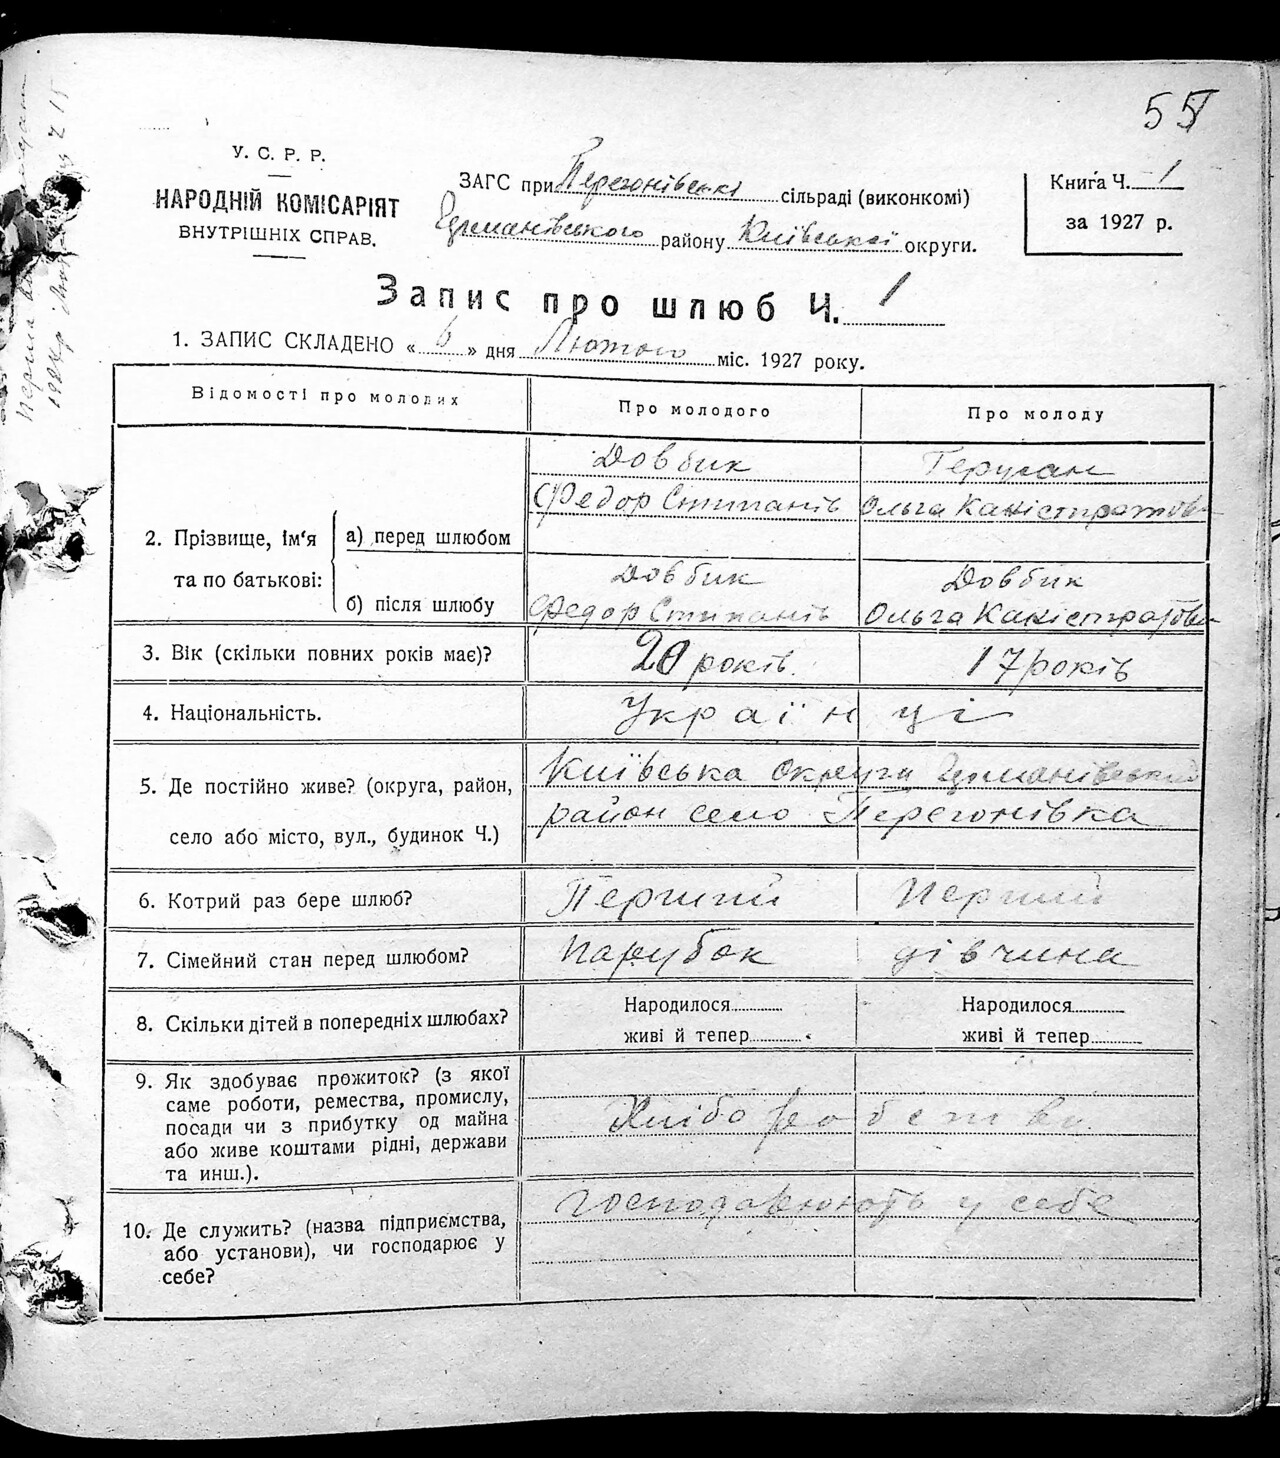 55
У. С. Р. Р.
НАРОДНІЙ КОМІСАРІЯТ
ВНУТРІШНІХ СПРАВ.
ЗАГС при Перегонівські сільраді (виконкомі)
району Київської округи.
Книга Ч. 1
за 1927 р.
Запис про шлюб Ч. 1
1. ЗАПИС СКЛАДЕНО « 6 » дня Лютого міс. 1927 року.
Відомості про молодих
Про молодого
Про молоду
2. Прізвище, ім‘я та по батькові:
а) перед шлюбом
Довбик
Федор Стипанів
Ольга Каністратов
б) після шлюбу
Довбик
Федор Стипанів
Довбик
Ольга Каністратов
3. Вік (скільки повних років має)?
20 років.
17 років
4. Національність.
Українці
5. Де постійно живе? (округа, район,
село або місто, вул., будинок Ч.)
Київська округи
район село Перегонівка
6. Котрий раз бере шлюб?
Перший
Перший
7. Сімейний стан перед шлюбом?
парубок
дівчина
8. Скільки дітей в попередніх шлюбах?
Народилося
живі й тепер
Народилося
живі й тепер
9. Як здобуває прожиток? (з якої
саме роботи, ремества, промислу,
посади чи з прибутку од майна
або живе коштами рідні, держави
та инш.).
Хлібороботво
10. Де служить? (назва підприємства,
або установи), чи господарює у
себе?
господарюють у себе